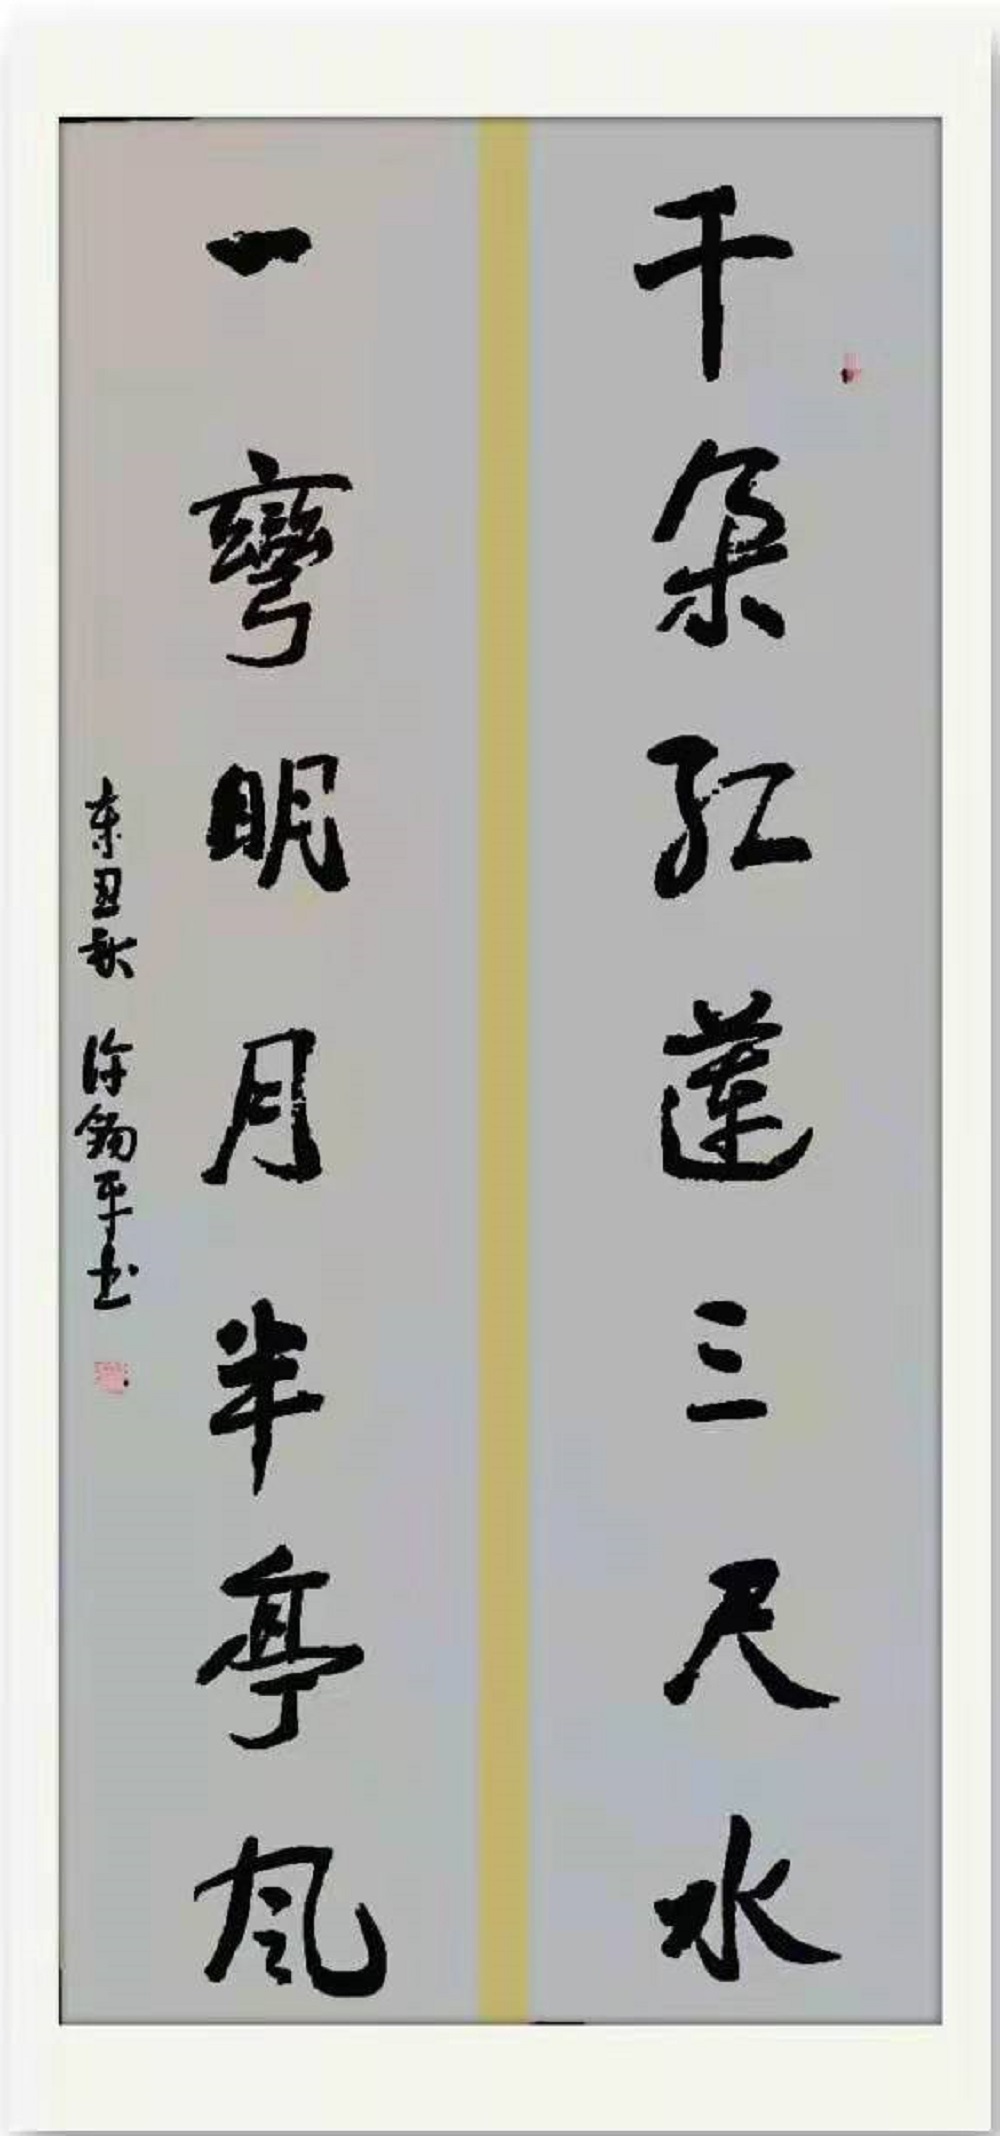 千朵红莲三尺水
一弯明月半亭风
辛丑秋 徐锡平书